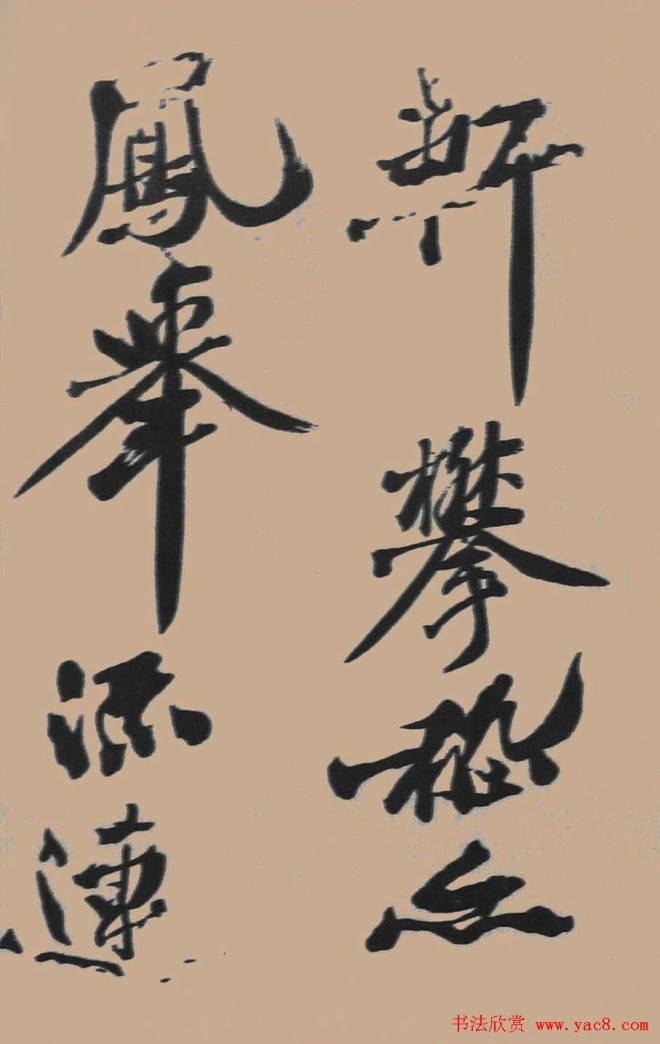 軒攀嵇
鳳舉流連
书法欣赏 www.yac8.com